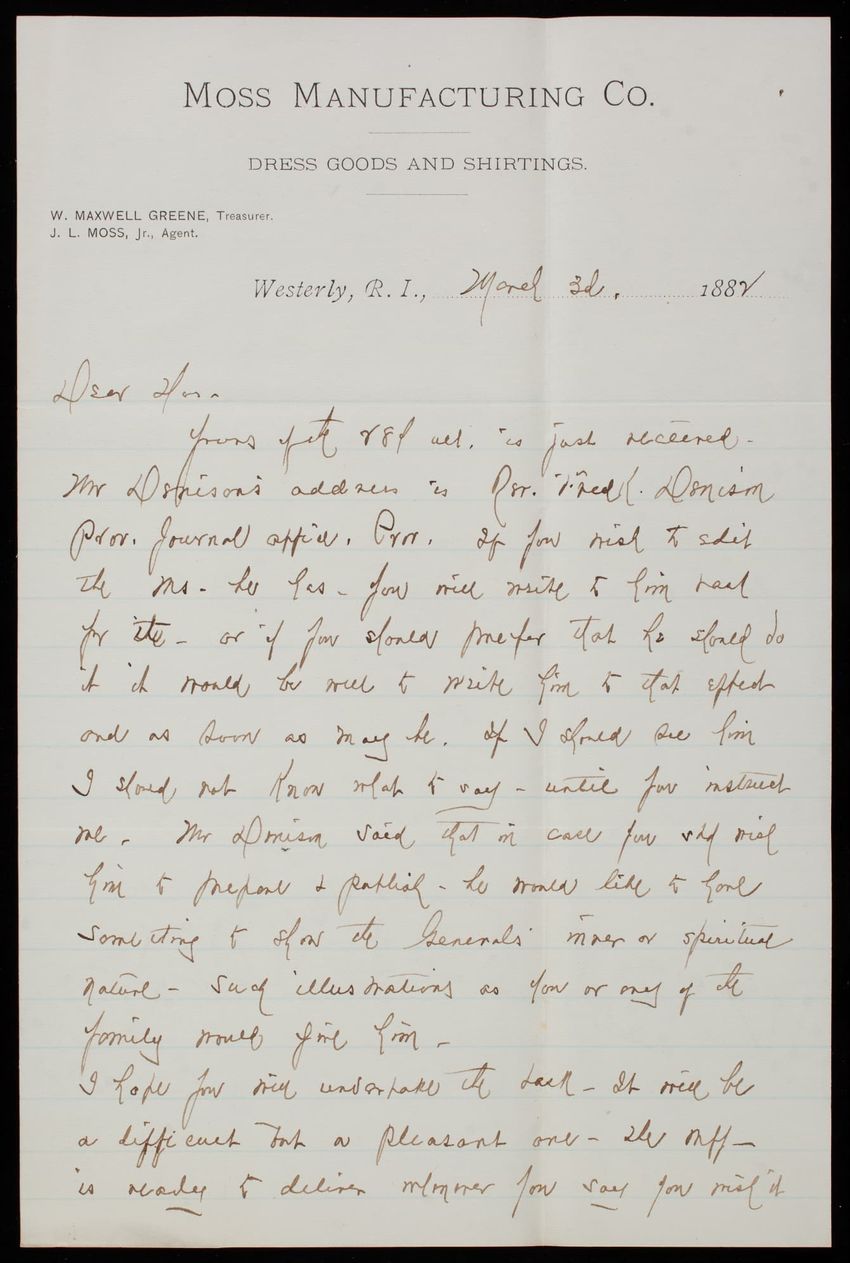 MOSS MANUFACTURING CO.
DRESS GOODS AND SHIRTINGS.
W. MAXWELL GREENE, Treasurer.
J. L. MOSS, Jr., Agent.
Westerly, R. I., March 3d, 1882
Dear
Yours of the 28th ult. is just received -
Mr Denison's address is Rev. Fred k. Denison
Prov. Journal office, Prov. If you wish to edit
the Ms. he has - you will write to him
for it - or if you should prefer that he should do
it it would be well to write him to that effect
and as soon as may be. If I should see him
I should not know what to say - until you instruct
me. Mr Denison said that in case you shd wish
him to prepare & publish - he would like to have
something to show the Generals' inner or spiritual
nature - Such illustrations as you or any of the
family would give him -
I hope you will undertake the task - It will be
a difficult but a pleasant one - The
is ready to deliver whenever you say you wish it